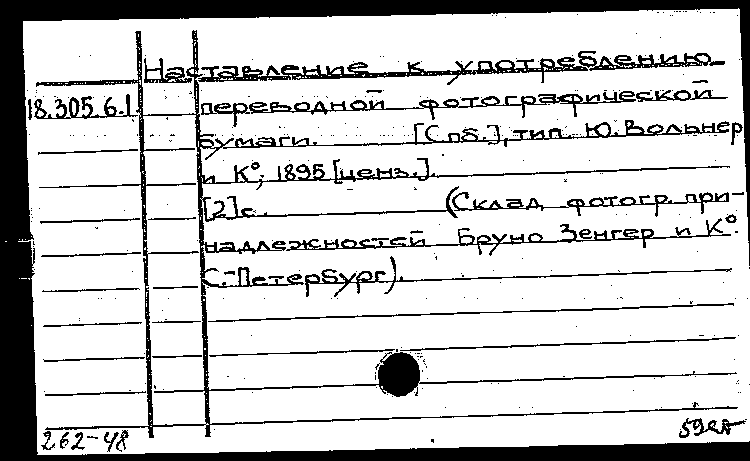 Наставление к употреблению
18.305.6.1. переводной фотографической
бумаги. [Спб.], тип. Ю. Вольнер
и К°, 1895 [ценз.].
[2]с. (Склад фотогр. при-
надлежностей Бруно Зенгер и К°.
С.-Петербург).
262-48